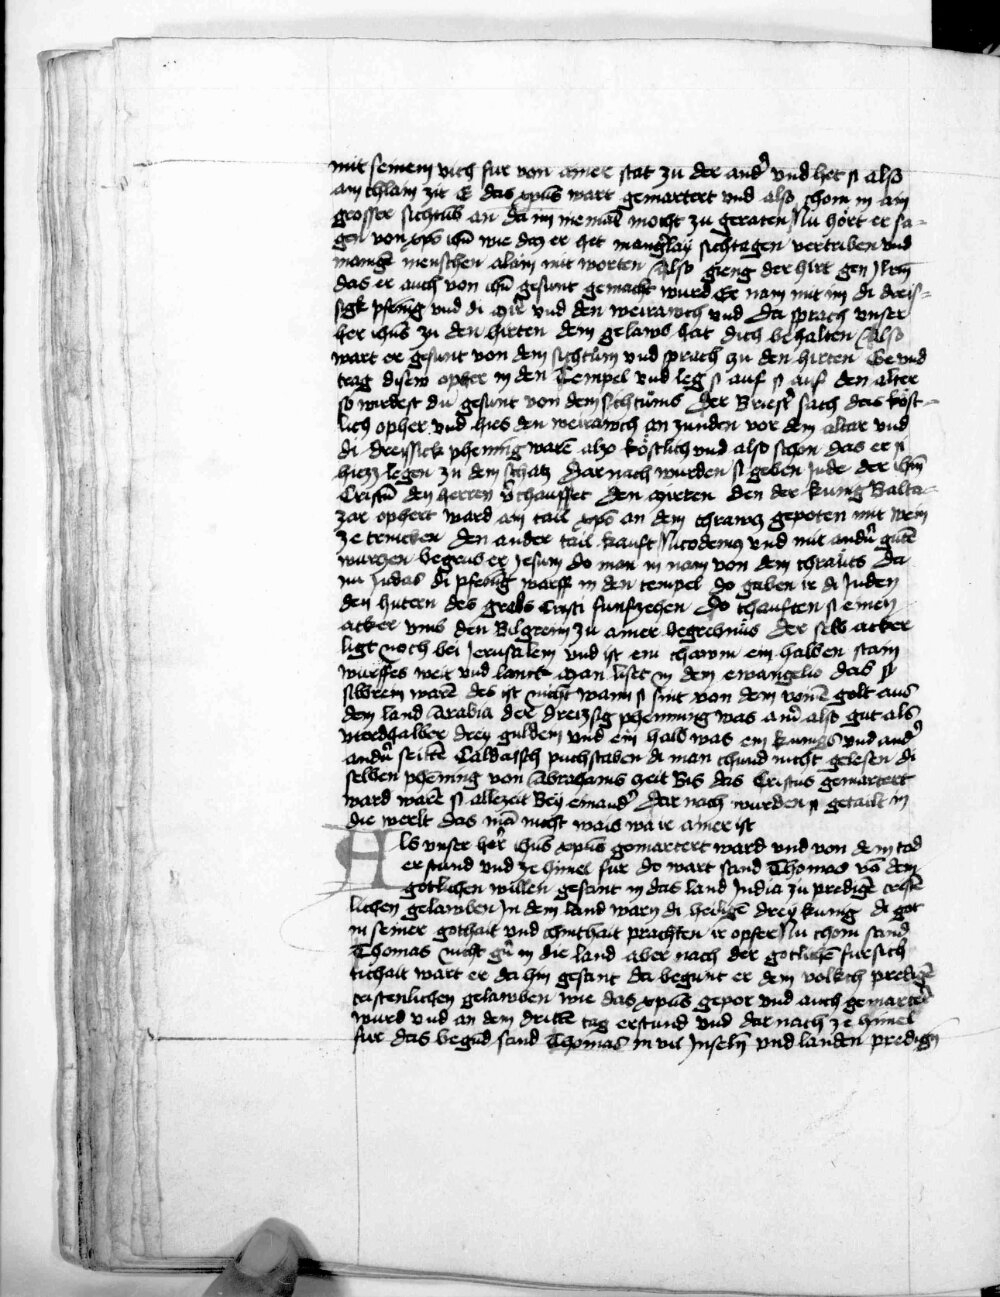 mit seinem vich fur von ainer stat zu der and̉ vnd het si also
ain chlain zit E das xp̄us wart gemartert vnd also chom in ain
grosser sichtūb an da im niemāt mocht zu geraten Nu hört er sa-
gen von xp̄o ih̄u wie daz er het mang̉lay sichtagen vertriben vnd
mangē menschen alain mit worten Also gieng der hirt gen Jrl̄m
das er auch von ih̄u gesunt gemacht wurd Er nam mit im di dreis-
sigk pfenīg vnd di mir̄ vnd den weirawch vnd Da sprach vnser
her ih̄us zu den hirten dem gelawb hat dich behalten Also
wart er gesunt von dem sichtum vnd sprach zu den hirten Ge vnd
trag disew opher in den Tempel vnd leg si auf si auf den alter
so wirdest du gesunt von dem sichtums Der Briest̉ sach das köst-
lich opher vnd hies den weirawch an zunden vor dem altar vnd
di dreissick phening warē alzo köstlich vnd also schon das er si
hiezz legen zu dem schatz Dar nach wurden si geben Jude der ih̄m
Cristū den herren v̉chauffet Den mirren den der kung Balta-
zar ophert ward ain tail xp̄o an dem chrawcz gepoten mit wein
ze trincken Den ander tail kauft Nicodemus vnd mit and̉n gutē
wurczen begrub er Jesum do man in nam von dem chräucs Da
nu Judas di pfenīg warff in den tempel do gaben ir di Juden
den hutern des grabs Cristi funfzehen Do chauften si einen
acker vmb den Bilgreim zu ainer begrebnüs Der selb acker
ligt noch bei Jerusalem vnd ist ein chawm ein halben stain
wurffes weit vnd lanck Man liset in dem ewangelio das si
silbrein warē des ist nicht wann si sint von dem votnē golt aus
dem land Arabia Der dreizsig phenning was ain̉ also gut als
vierdhalber drey guldein vnd ein halb was ein kunigs vnd and̉
andn̉ seitē Caldaisch puchstaben di man chund nicht gelesen di
selben phening von Abrahams zeit Bis das Cristus gemartert
ward warē si allezeit Bey einand̉ Dar nach wurden si getailt in
die werlt das mā nicht wais wa ir ainer ist
Als vnser her̄ ih̄us xp̄us gemartert ward vnd von dem tod
er stund vnd ze himel fur do wart sand Thomas vō dem
gotlichen willen gesant in das land India zu predigē cristē
lichen gelawben In dem land warn di heiligē drey kunig di got
in seiner gothait vnd chinthait prachten ir opfer Nu chom sand
Thomas nicht gn̉ in die land aber nach der gotlichē fursich
tichait wart er da hin gesant da begunt er dem volkch predigē
cristenlichen gelawben wie das xp̄us gepor vnd auch gemartert
wurd vnd an dem drittē tag erstund vnd dar nach ze himel
fur das begūd sand Thomas in vil Inseln̄ vnd landen predign